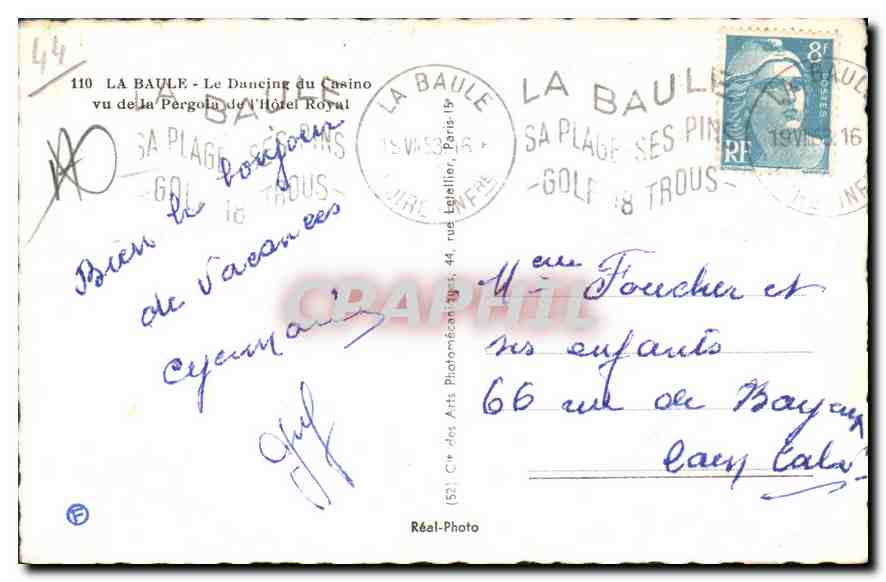 44
110 LA BAULE - Le Dancing du Casino
vu de la Pergola de l'Hôtel Royal
LA BAULE
SA PLAGE SES PINS
- GOLF 18 TROUS -
LA BAULE
19 VII 53 16
LOIRE INFRE
LA BAULE
SA PLAGE SES PINS
- GOLF 18 TROUS -
8F
POSTES
RF
LA BAULE
19 VII 53. 16
Bien le bonjour
de vacances
(52) Cie des Arts Photomécaniques, 44, rue Letellier, Paris-15e
CPAPHIL
Mme Foucher et
ses enfants
66 rue de Bayeux
Caen Calv
F
Réal-Photo